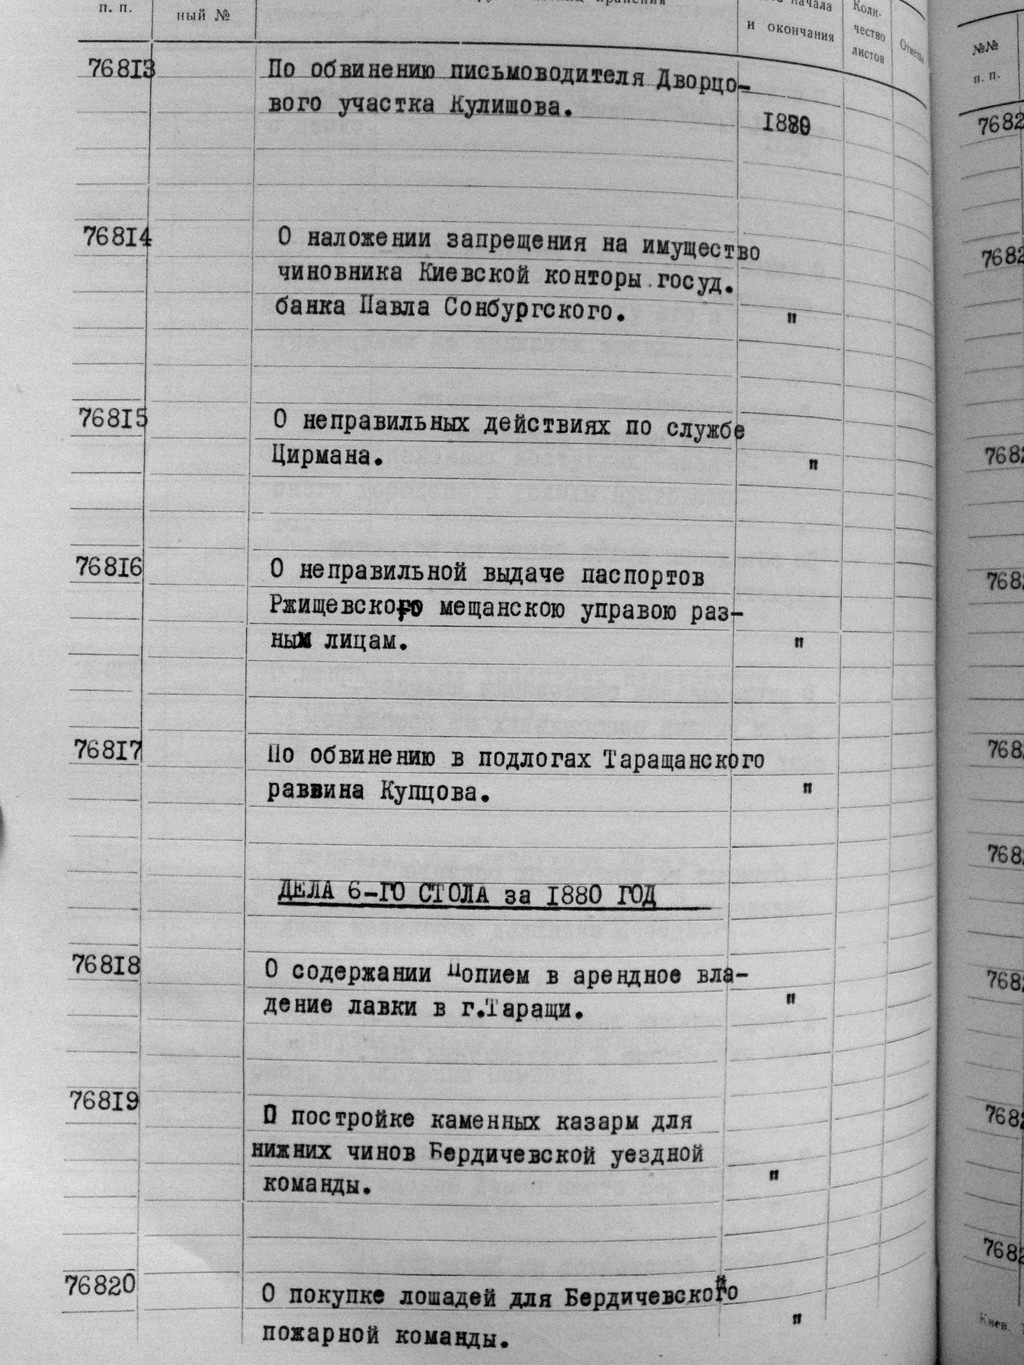 п. п.
ный №
начала
и окончания
Коли-
чество
листов
76813
По обвинению письмоводителя Дворцо-
вого участка Кулишова.
1880
76814
О наложении запрещения на имущество
чиновника Киевской конторы госуд.
банка Павла Сонбургского.
"
76815
О неправильных действиях по службе
Цирмана.
"
76816
О неправильной выдаче паспортов
Ржищевского мещанскою управою раз-
ным лицам.
"
76817
По обвинению в подлогах Таращанского
раввина Купцова.
"
ДЕЛА 6-ГО СТОЛА за 1880 ГОД
76818
О содержании Попием в арендное вла-
дение лавки в г.Таращи.
"
76819
О постройке каменных казарм для
нижних чинов Бердичевской уездной
команды.
"
76820
О покупке лошадей для Бердичевской
пожарной команды.
"
№№
п. п.
7682
7682
7682
7682
7682
7682
7682
7682
7682